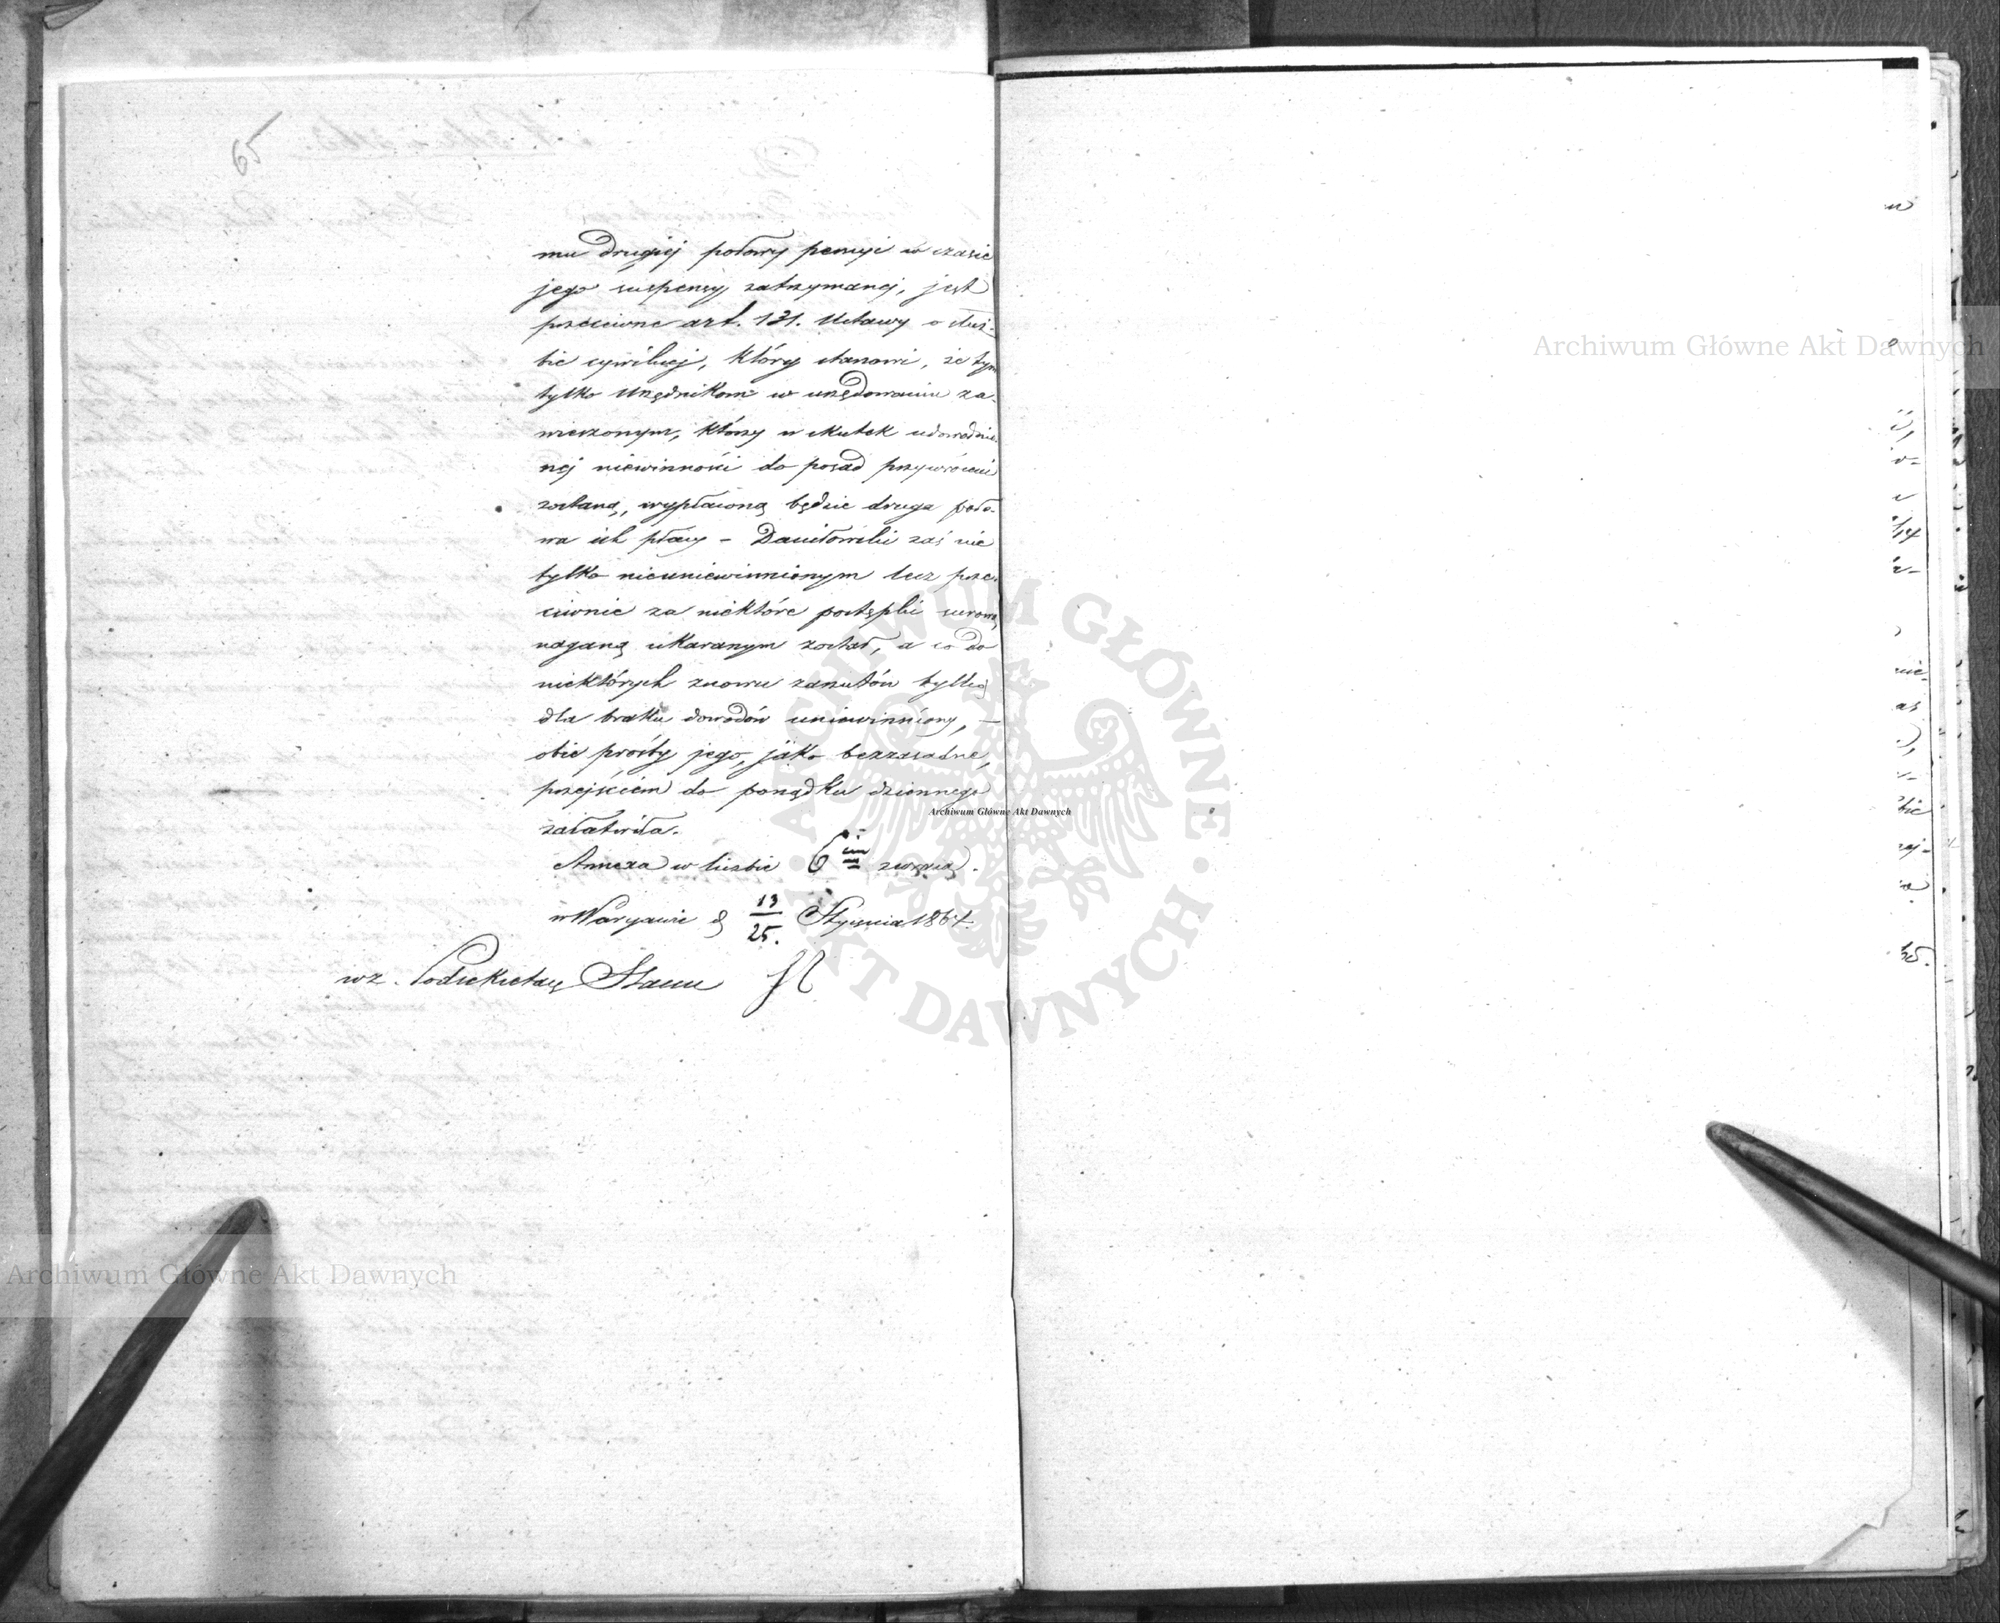 65
mu drugiej połowy pensyi w czasie
jego suspensyi zatrzymanej, jest
przeciwne art. 131. Ustawy o służ-
bie cywilnej, który stanowi, że tym
tylko Urzędnikom w urzędowaniu za-
wieszonym, którzy w skutek udowodnio-
nej niewinności do posad przywróceni
zostaną, wypłaconą będzie druga poło-
wa ich płacy – Daniłowski zaś nie
tylko nieuniewinnionym lecz prze-
ciwnie za niektóre postępki surową
naganą ukaranym został, a co do
niektórych znowu zarzutów tylko
dla braku dowodów uniewinniony, –
obie prośby jego, jako bezzasadne,
przejściem do porządku dziennego
załatwiła.
Annexa w liczbie 6 zwracą.
w Warszawie d 13/25. Stycznia 1864.
wz. Podsekretarz Stanu
Archiwum Główne Akt Dawnych
Archiwum Główne Akt Dawnych
Archiwum Główne Akt Dawnych
ARCHIWUM GŁÓWNE AKT DAWNYCH